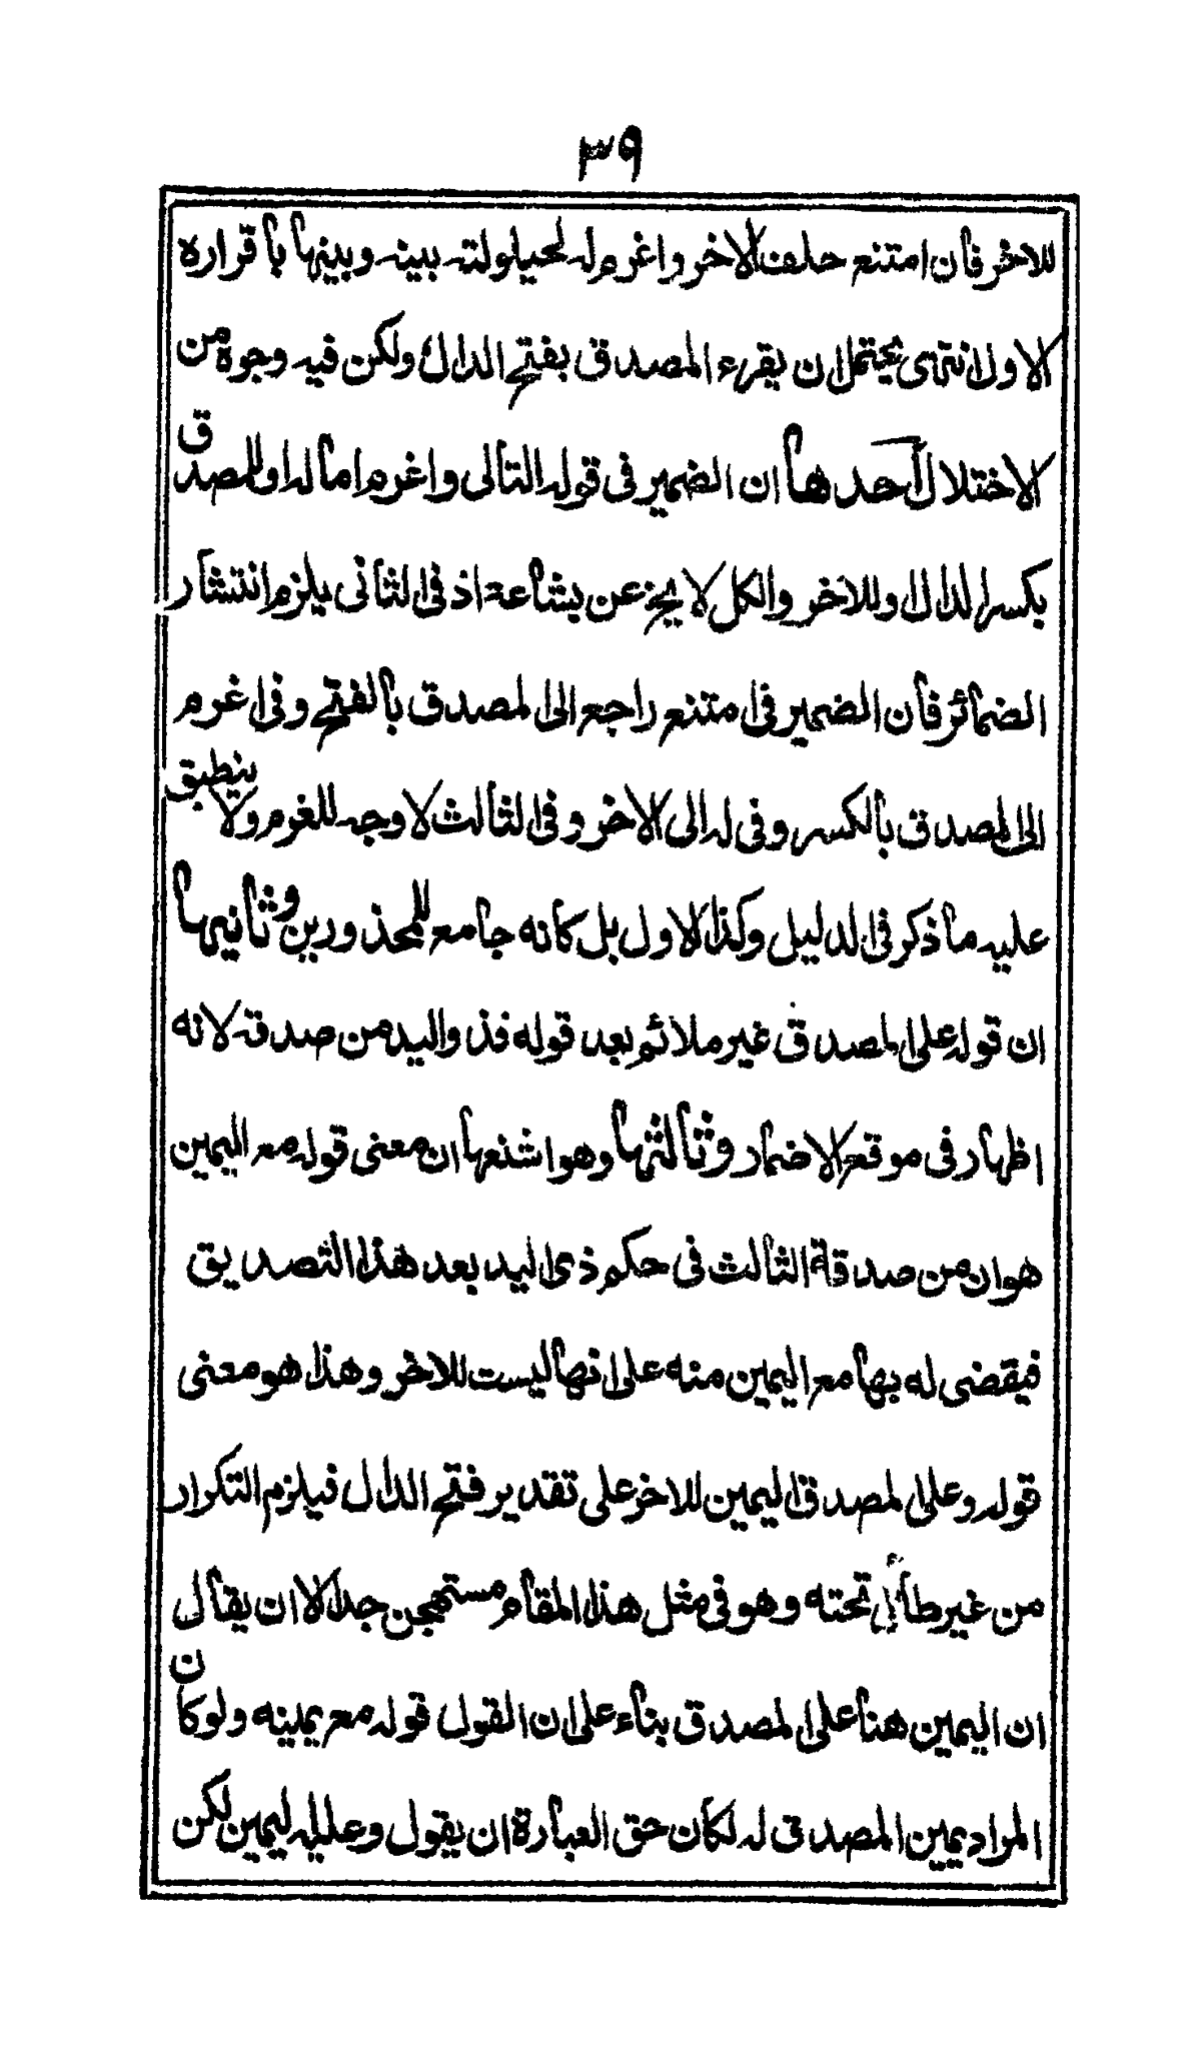 ٣٩
للاخر فان امتنع حلف الاخر واغرم له لحيلولته بينه وبينها باقراره
الاول انتهى يحتمل ان يقرء المصدق بفتح الدال ولكن فيه وجوه من
الاختلال احدها ان الضمير فى قوله التالى واغرم اما له او للمصدق
بكسر الدال او للاخر والكل لا يخ عن بشاعة اذ فى الثانى يلزم انتشار
الضمائر فان الضمير فى امتنع راجع الى المصدق بالفتح وفى اغرم
الى المصدق بالكسر وفى له الى الاخر وفى الثالث لا وجه للغرم ولا ينطبق
عليه ما ذكر فى الدليل وكذا الاول بل كانه جامع للمحذورين وثانيها
ان قوله على المصدق غير ملائم بعد قوله فذو اليد من صدقه لانه
اظهار فى موقع الاضمار وثالثها وهو اشنعها ان معنى قوله مع اليمين
هو ان من صدقة الثالث فى حكم ذى اليد بعد هذا التصديق
فيقضى له بها مع اليمين منه على انها ليست للاخر وهذا هو معنى
قوله وعلى المصدق اليمين للاخر على تقدير فتح الدال فيلزم التكرار
من غير طائل تحته وهو فى مثل هذا المقام مستهجن جدا الا ان يقال
ان اليمين هنا على المصدق بناء على ان القول قوله مع يمينه ولو كان
المراد يمين المصدق له لكان حق العبارة ان يقول وعليه اليمين لكن